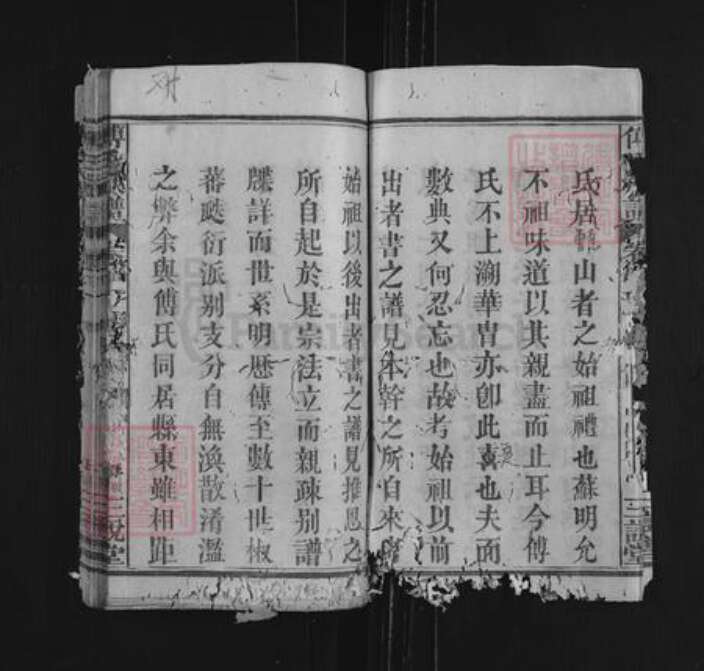 氏居韓山者之始祖禮也蘇明允
不祖味道以其親盡而止耳今傅
氏不上溯華冑亦卽此義也夫面
數典又何忍忘也故考始祖以前
出者書之譜見本幹之所自來
始祖以後出者書之譜見推恩之
所自起於是宗法立而親疎别譜
牒詳而世系明歷傳至數十世椒
蕃瓞衍派别支分自無渙散淆濫
之弊余與傅氏同居縣東雖相距
三說堂
FamilySearch